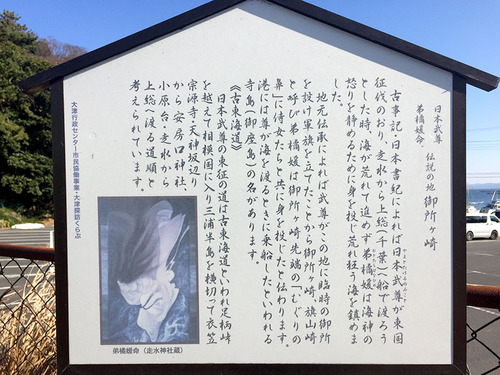 日本武尊
弟橘媛命
伝説の地 御所ヶ崎
古事記・日本書紀によれば日本武尊が東国
征伐のおり、走水から上総(千葉)へ船で渡ろう
とした時、海が荒れて進めず弟橘媛は海神の
怒りを静めるために身を投じ荒れ狂う海を鎮めま
した。
地元伝承によれば武尊がこの地に臨時の御所
を設け軍旗を立てたことから御所ヶ崎、旗山崎
と呼び弟橘媛は御所ヶ崎先端の「むぐりの
鼻」に侍女たちと共に身を投じたと伝わります。
港には尊が海を渡るときに乗船したといわれる
寺島(御座島)の名があります。
《古東海道》
日本武尊の東征の道は古東海道といわれ足柄峠
を越えて相模国に入り三浦半島を横切って衣笠
宗源寺・天神坂辺り
から安房口神社
小原台・走水から
上総へ渡る道順と
考えられています。
弟橘媛命(走水神社蔵)
大津行政センター市民協働事業・大津探訪くらぶ